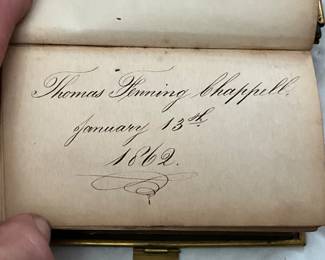 Thomas Fenning Chappell.
January 13th.
1862.